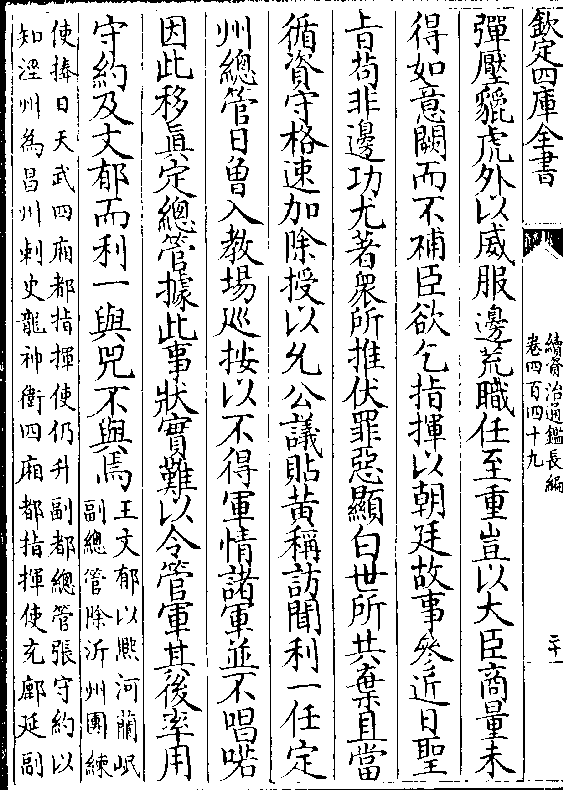 欽定四庫全書
續資治通鑑長編
卷四百四十九
二十一
彈壓貔虎外以威服邊荒職任至重豈以大臣商量未
得如意闕而不補臣欲乞指揮以朝廷故事參近日聖
旨苟非邊功尤著衆所推伏罪惡顯白世所共棄且當
循資守格速加除授以允公議貼黃稱訪聞利一任定
州總管日曾入教場巡按以不得軍情諸軍並不唱喏
因此移眞定總管據此事狀實難以令管軍其後率用
守約及文郁而利一與兕不與焉
王文郁以熈河蘭岷
副總管除沂州團練
使捧日天武四廂都指揮使仍升副都總管張守約以
知涇州為昌州刺史龍神衛四廂都指揮使充鄜延副